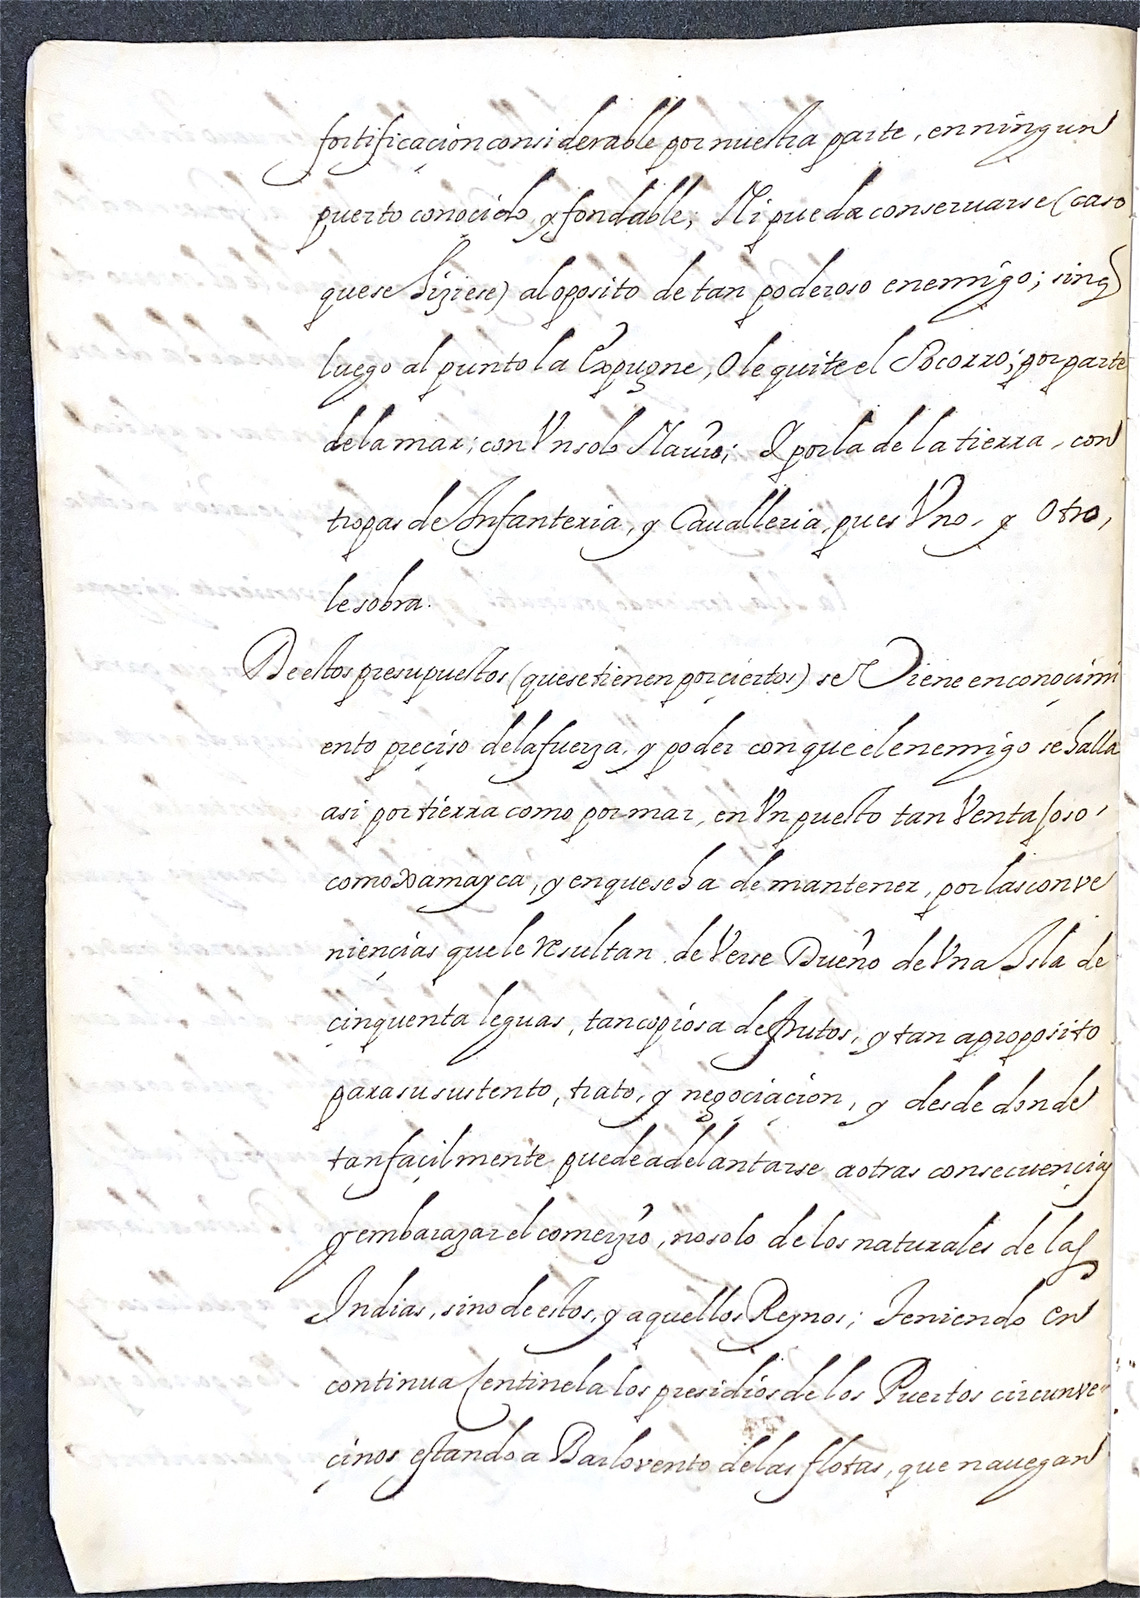 fortificacion considerable por nuestra parte, en ningun
puerto conocido, y fondable; Ni pueda conseruarse (caso
que se hiziese) al oposito de tan poderoso enemigo; sin q
luego al punto la Expugne, O le quite el Socorro; por parte
de la mar; con Vn solo Nauio; Y por la de la tierra, con
tropas de Infanteria, y Caualleria, pues Vno, y Otro,
le sobra.
De estos presupuestos (que se tienen por ciertos) se Viene en conoçimi
ento preçiso de la fuerza, y poder con que el enemigo se halla
asi por tierra como por mar, en Vn puesto tan Ventajoso,
como Xamayca, y en que se ha de mantener, por las conve
niençias que le resultan de Verse Dueño de Vna Isla de
çinquenta leguas, tan copiosa de frutos, y tan aproposito
para su sustento, trato, y negoçiaçion, y desde donde
tan façilmente puede adelantarse a otras consecuençias
y embarazar el comerzio, no solo de los naturales de las
Indias, sino de estos, y aquellos Reynos; Teniendo en
continua sentinela los presidios de los Puertos circunve
çinos estando a Barlovento de las flotas, que nauegan